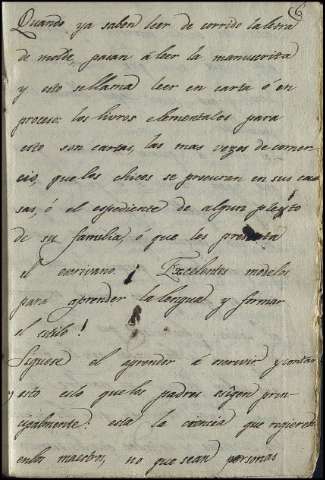 6
Quando ya saben leer de corrido la letra
de molde, pasan á leer la manuscrita
y esto se llama leer en carta ó en
proceso: los livros elementales para
esto son cartas, las mas vezes de comer-
cio, que los chicos se procuran en sus ca-
sas, ó el espediente de algun pleyto
de su familia, ó que les presta
el escrivano. ¡Excelentes modelos
para aprender la lengua, y formar
el estilo!
Siguese el aprender á escrivir y contar
y esto es lo que los padres exigen prin-
cipalmente: esta la ciencia que requieren
en los maestros, no que sean personas